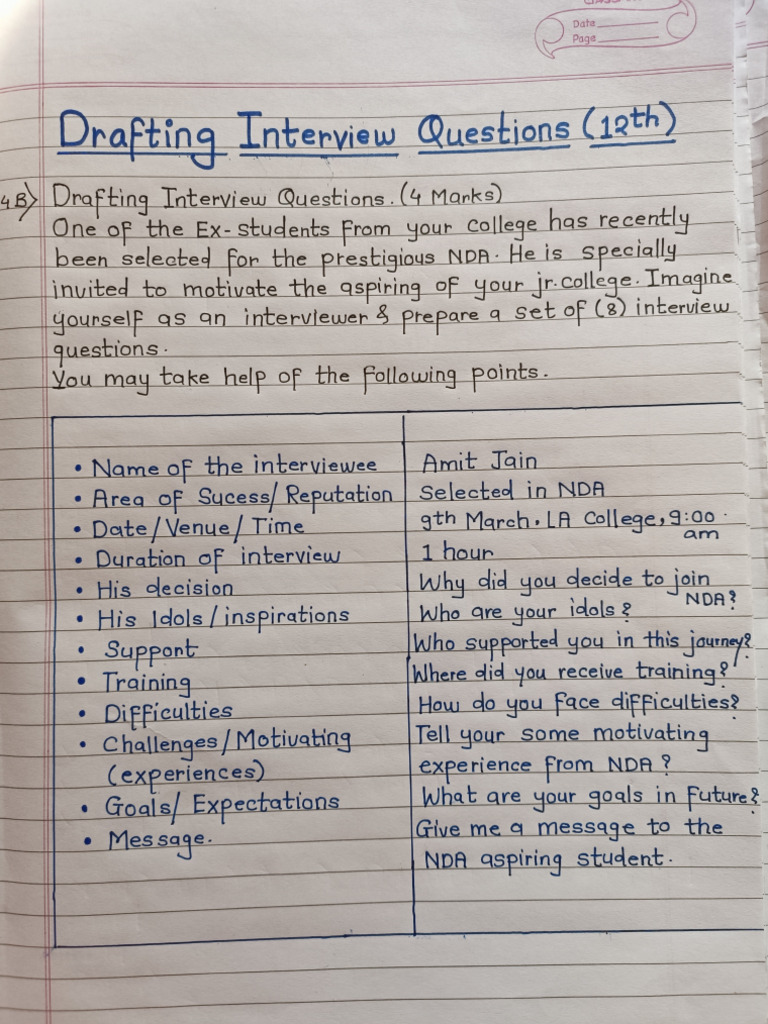 Date
Page
Drafting Interview Questions (12th)
4B) Drafting Interview Questions. (4 Marks)
One of the Ex-students from your college has recently
been selected for the prestigious NDA. He is specially
invited to motivate the aspiring of your jr. college. Imagine
yourself as an interviewer & prepare a set of (8) interview
questions.
You may take help of the following points.
• Name of the interviewee Amit Jain
• Area of Sucess/ Reputation Selected in NDA
• Date/Venue/Time 9th March. LA College, 9:00 am
• Duration of interview 1 hour
• His decision Why did you decide to join NDA?
• His Idols/inspirations Who are your idols?
• Support Who supported you in this journey?
• Training Where did you receive training?
• Difficulties How do you face difficulties?
• Challenges/Motivating Tell your some motivating
(experiences) experience from NDA?
• Goals/ Expectations What are your goals in future?
• Message. Give me a message to the
NDA aspiring student.